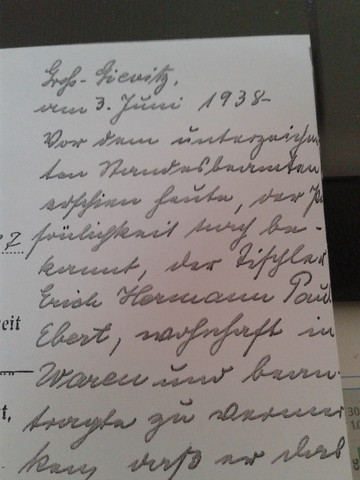 Groß-Gievitz,
am 3. Juni 1938-
Vor dem unterzeichne
ten Standesbeamten
erschien heute, der Pe
7 sönlichkeit nach be-
kannt, der Tischler
Erich Hermann Paul
eit
Ebert, wohnhaft in
Waren und bean-
t,
tragte zu vermer
ken, daß er das
30